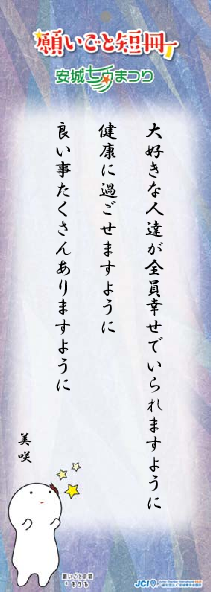 願いごと短冊
安城七夕まつり
大好きな人達が全員幸せでいられますように
健康に過ごせますように
良い事たくさんありますように
美咲
JCI